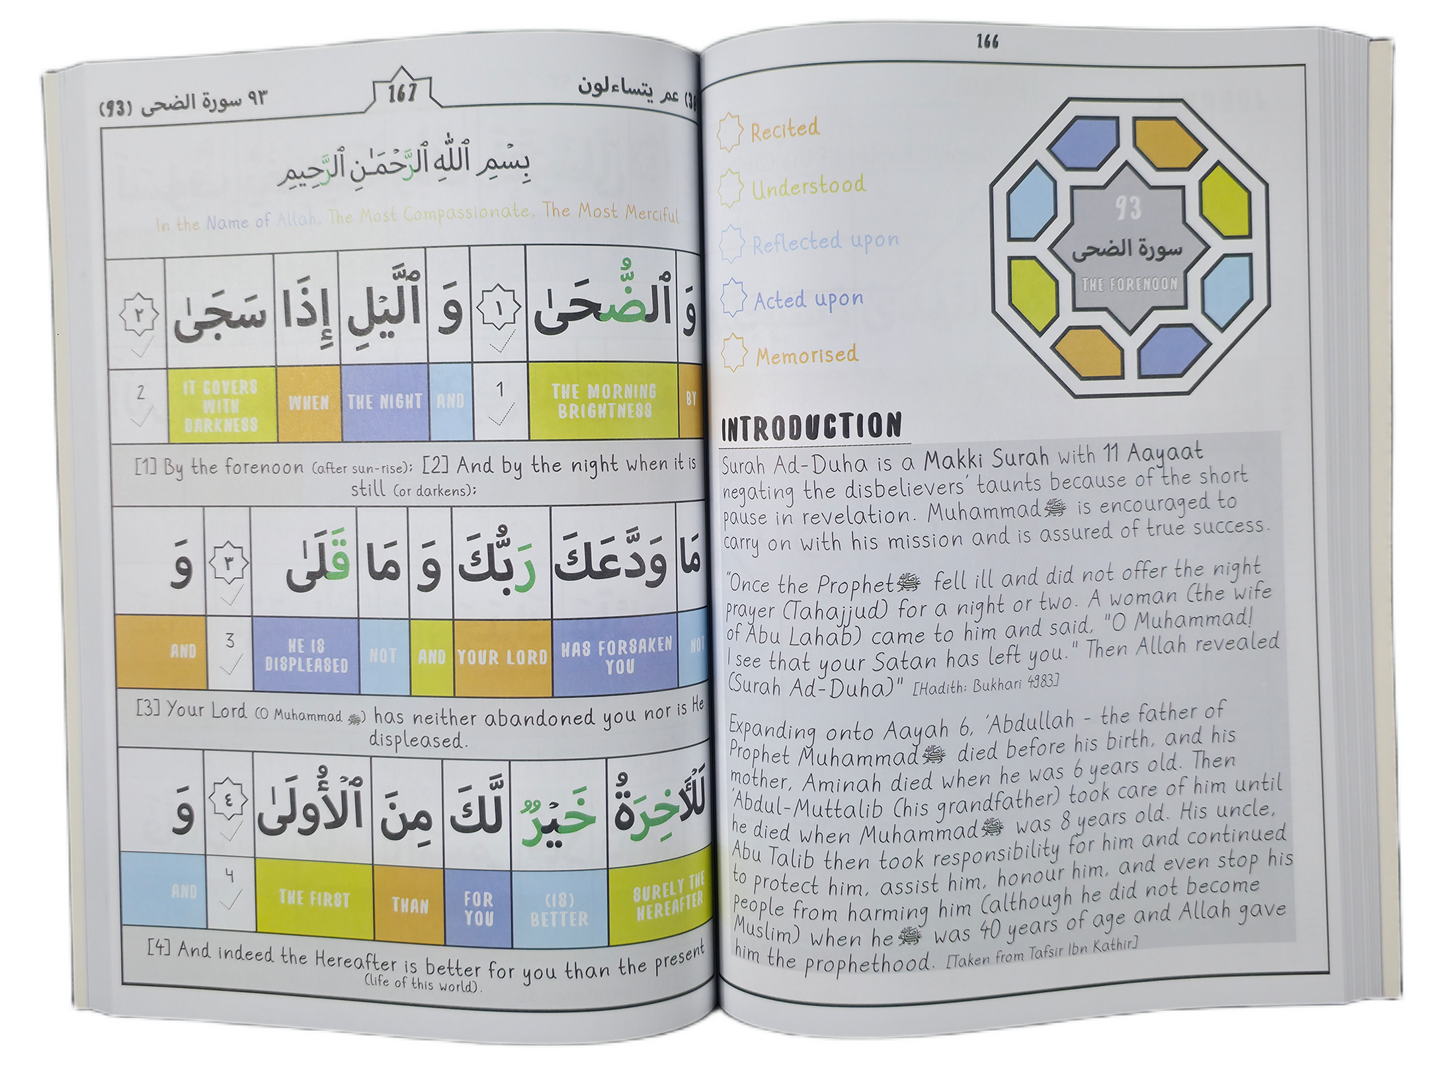 166
Recited
Understood
Reflected upon
Acted upon
Memorised
93
سورة الضحى
THE FORENOON
INTRODUCTION
Surah Ad-Duha is a Makki Surah with 11 Aayaat
negating the disbelievers' taunts because of the short
pause in revelation. Muhammad ﷺ is encouraged to
carry on with his mission and is assured of true success.
"Once the Prophet ﷺ fell ill and did not offer the night
prayer (Tahajjud) for a night or two. A woman (the wife
of Abu Lahab) came to him and said, "O Muhammad!
I see that your Satan has left you." Then Allah revealed
(Surah Ad-Duha)" [Hadith: Bukhari 4983]
Expanding onto Aayah 6, 'Abdullah - the father of
Prophet Muhammad ﷺ died before his birth, and his
mother, Aminah died when he was 6 years old. Then
'Abdul-Muttalib (his grandfather) took care of him until
he died when Muhammad ﷺ was 8 years old. His uncle,
Abu Talib then took responsibility for him and continued
to protect him, assist him, honour him, and even stop his
people from harming him (although he did not become
Muslim) when he ﷺ was 40 years of age and Allah gave
him the prophethood. [Taken from Tafsir Ibn Kathir]
عم يتساءلون
167
٩٣ سورة الضحى (93)
بِسْمِ ٱللَّهِ ٱلرَّحْمَـٰنِ ٱلرَّحِيمِ
In the Name of Allah, The Most Compassionate, The Most Merciful
وَ ٱلضُّحَىٰ ١ وَ ٱلَّيْلِ إِذَا سَجَىٰ ٢
BY THE MORNING BRIGHTNESS 1 AND THE NIGHT WHEN IT COVERS WITH DARKNESS 2
[1] By the forenoon (after sun-rise); [2] And by the night when it is
still (or darkens);
مَا وَدَّعَكَ رَبُّكَ وَ مَا قَلَىٰ ٣ وَ
NOT HAS FORSAKEN YOU YOUR LORD AND NOT HE IS DISPLEASED 3 AND
[3] Your Lord (O Muhammad ﷺ) has neither abandoned you nor is He
displeased.
لَلْـَٔاخِرَةُ خَيْرٌ لَّكَ مِنَ ٱلْأُولَىٰ ٤ وَ
SURELY THE HEREAFTER (IS) BETTER FOR YOU THAN THE FIRST 4 AND
[4] And indeed the Hereafter is better for you than the present
(life of this world).